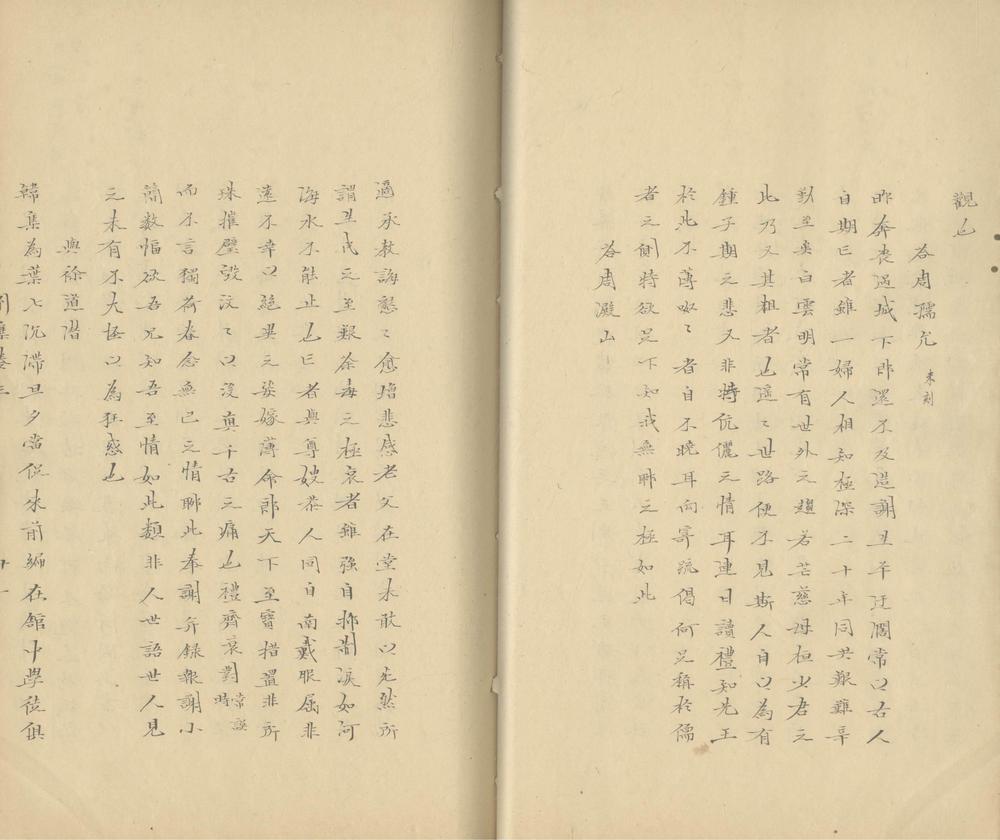 觀也
答周孺允 未刻
昨奔喪過城下即還不及造謝且平迂濶常以古人
自期亡者雖一婦人相知極深二十年同共艱難辛
至矣白雲明常有世外之趣若芒慈母桓少君之
此乃又其粗者也遥〻世路便不見斯人自以為有
鍾子期之悲又非特伉儷之情耳連日讀禮知先王
於此不薄呶〻者自不曉耳向寄疏偈何足稱於儒
者之側特欲足下知我無聊之極如此
答周澱山
適承教誨懇〻愈增悲感老父在堂未敢以死然所
謂且民之至艱荼毒之極哀者雖強自抑制淚如河
海水不能止也亡者與尊嫂恭人同自南戴服屈非
遠不幸以絕異之姿嫁薄命郎天下至寶措置非所
珠摧璧毀汶〻以沒真千古之痛也禮齊衰對時常談
而不言獨荷眷念無已之情聊此奉謝并錄報謝小
簡数幅欲吾兄知吾至情如此類非人世語世人見
之未有不大怪以為狂惑也
與徐道潛
韓集為葉八沉滯旦夕當促來前緬在館中學徒俱